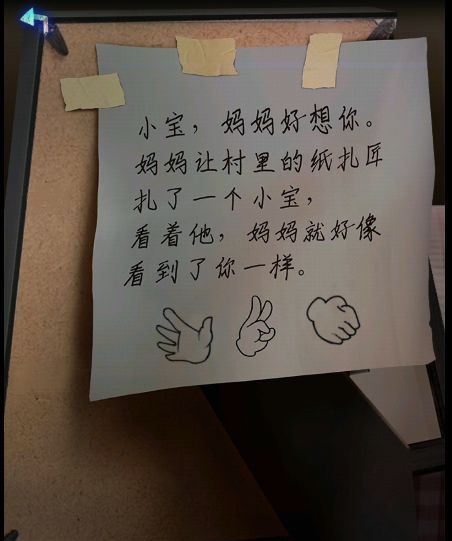 小宝，妈妈好想你。
妈妈让村里的纸扎匠
扎了一个小宝，
看着他，妈妈就好像
看到了你一样。